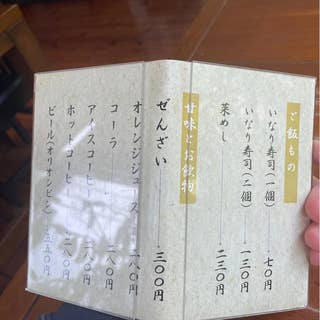 ご飯もの
いなり寿司(一個)・七〇円
いなり寿司(二個)・一三〇円
菜めし・二三〇円
甘味とお飲物
ぜんざい・三〇〇円
オレンジジュース・二八〇円
コーラ・二八〇円
アイスコーヒー・二八〇円
ホットコーヒー・二八〇円
ビール(オリオンビン)・五五〇円